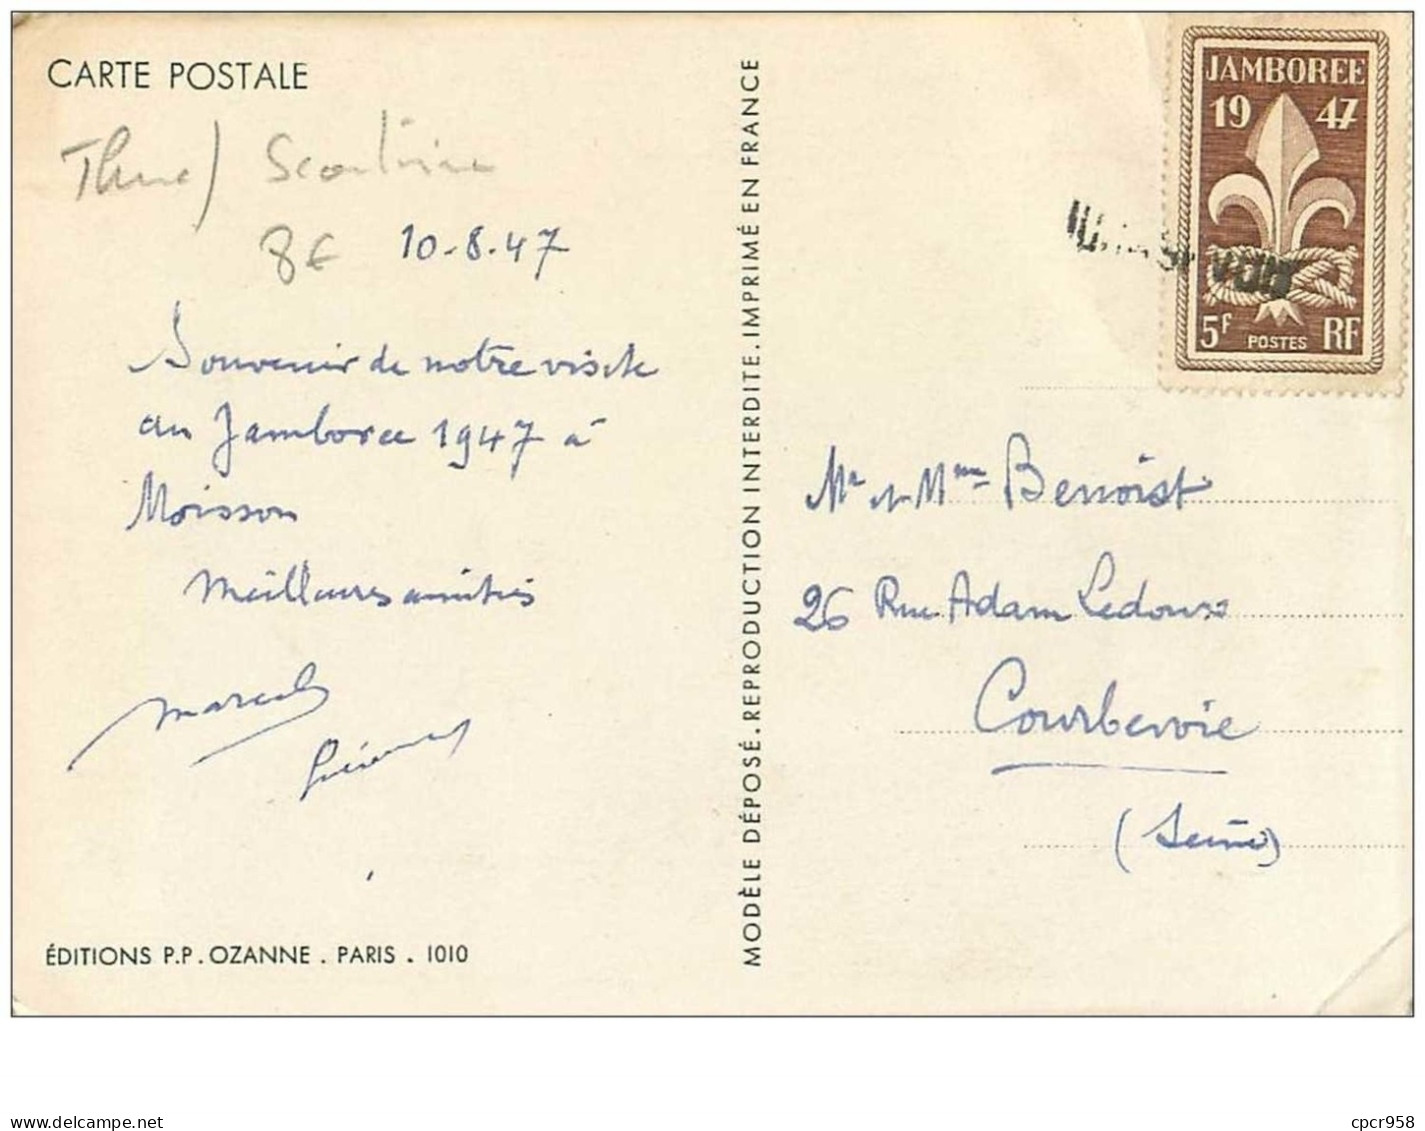 CARTE POSTALE
Scoutisme
8€ 10-8-47
Souvenir de notre visite
au Jamboree 1947 à
Moisson
Meilleures amitiés
Marcel
ÉDITIONS P.P. OZANNE . PARIS . 1010
MODÈLE DÉPOSÉ. REPRODUCTION INTERDITE. IMPRIMÉ EN FRANCE
JAMBOREE
19 47
5F POSTES RF
Mr et Mme Benoist
26 Rue Adam Ledoux
Courbevoie
(Seine)
delcampe.net
cpcr958